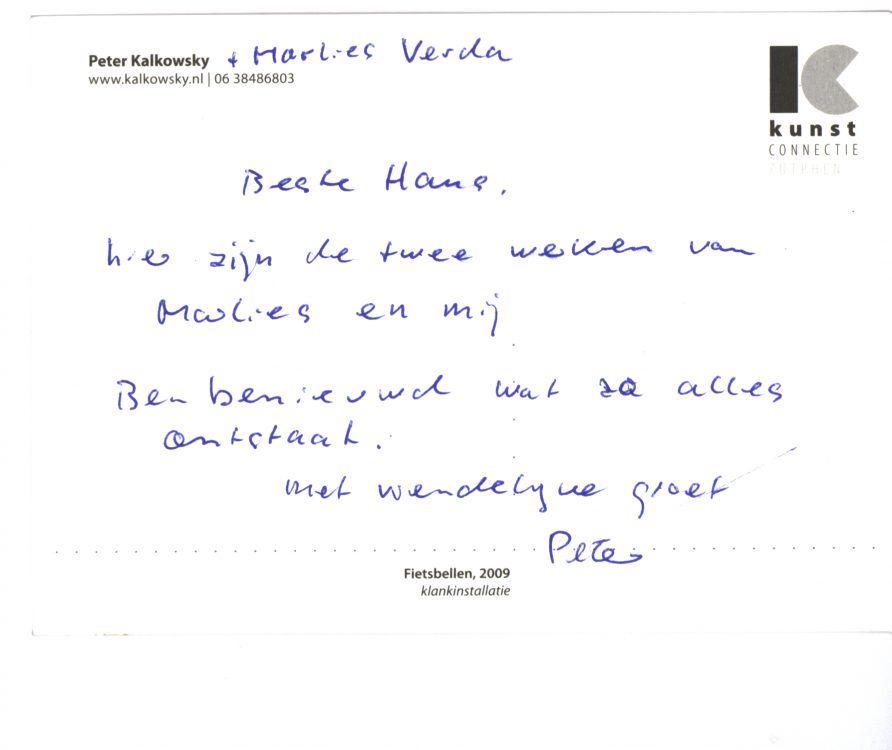 Peter Kalkowsky + Marlies Verda
www.kalkowsky.nl | 06 38486803
kunst
CONNECTIE
ZUTPHEN
Beste Hans,
hier zijn de twee werken van
Marlies en mij
Ben benieuwd wat zo alles
ontstaat.
met wendelyne groet
Peter
Fietsbellen, 2009
klankinstallatie